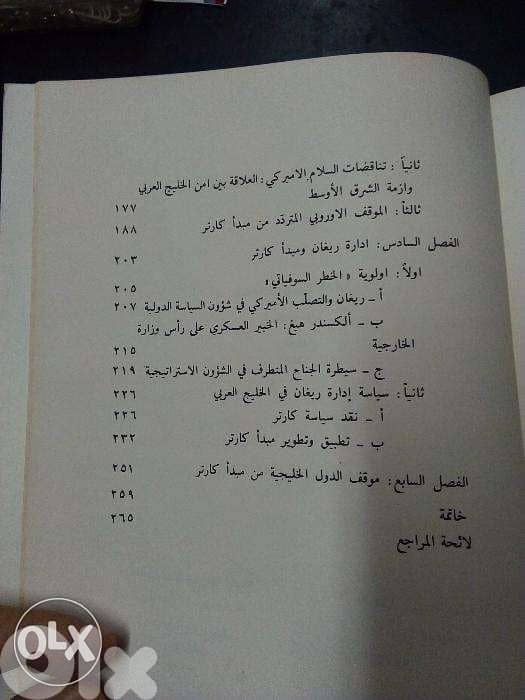 ثانياً : تناقضات السلام الاميركي : العلاقة بين امن الخليج العربي
وازمة الشرق الأوسط ١٧٧
ثالثاً : الموقف الاوروبي المتردّد من مبدأ كارتر ١٨٨
الفصل السادس : ادارة ريغان ومبدأ كارتر ٢٠٣
اولاً : اولوية «الخطر السوفياتي» ٢٠٥
أ ـ ريغان والتصلّب الأميركي في شؤون السياسة الدولية ٢٠٧
ب ـ ألكسندر هيغ : الخبير العسكري على رأس وزارة
الخارجية ٢١٥
ج ـ سيطرة الجناح المتطرف في الشؤون الاستراتيجية ٢١٩
ثانياً : سياسة إدارة ريغان في الخليج العربي ٢٢٦
أ ـ نقد سياسة كارتر ٢٢٦
ب ـ تطبيق وتطوير مبدأ كارتر ٢٣٢
الفصل السابع : موقف الدول الخليجية من مبدأ كارتر ٢٥١
خاتمة ٢٥٩
لائحة المراجع ٢٦٥
OLX
olx